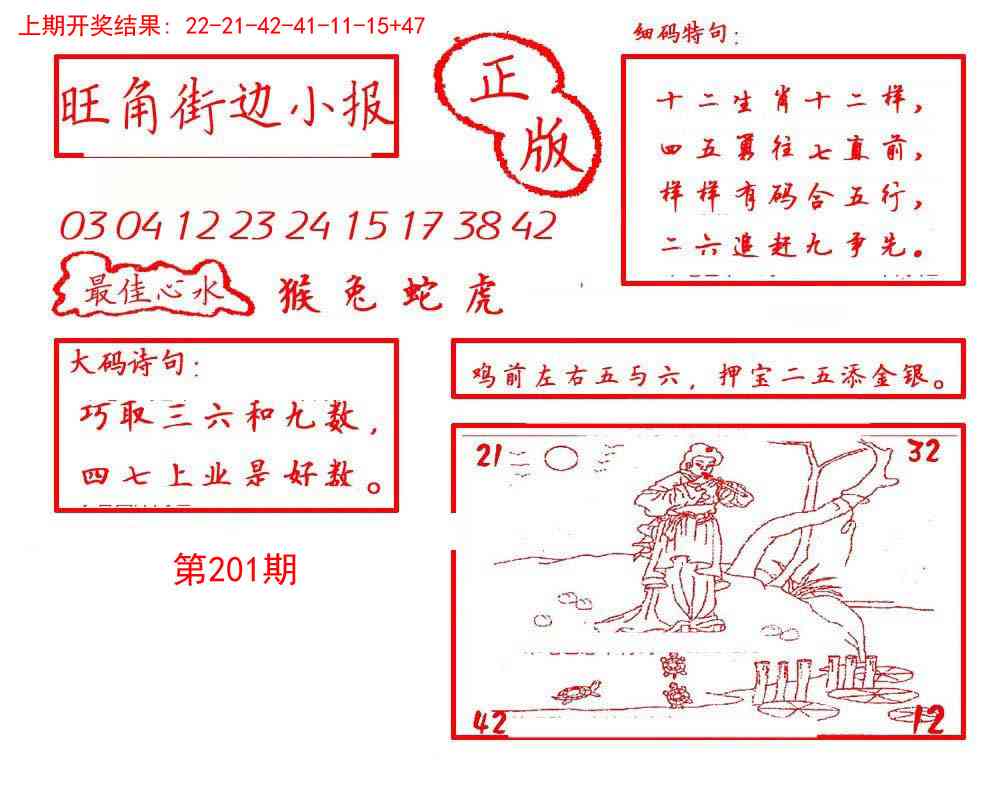 上期开奖结果：22-21-42-41-11-15+47
旺角街边小报
正版
细码特句：
十二生肖十二样，
四五勇往七直前，
样样有码合五行，
二六追赶九争先。
03 04 12 23 24 15 17 38 42
最佳心水
猴兔蛇虎
大码诗句：
巧取三六和九数，
四七上业是好数。
鸡前左右五与六，押宝二五添金银。
第201期
21
32
42
12